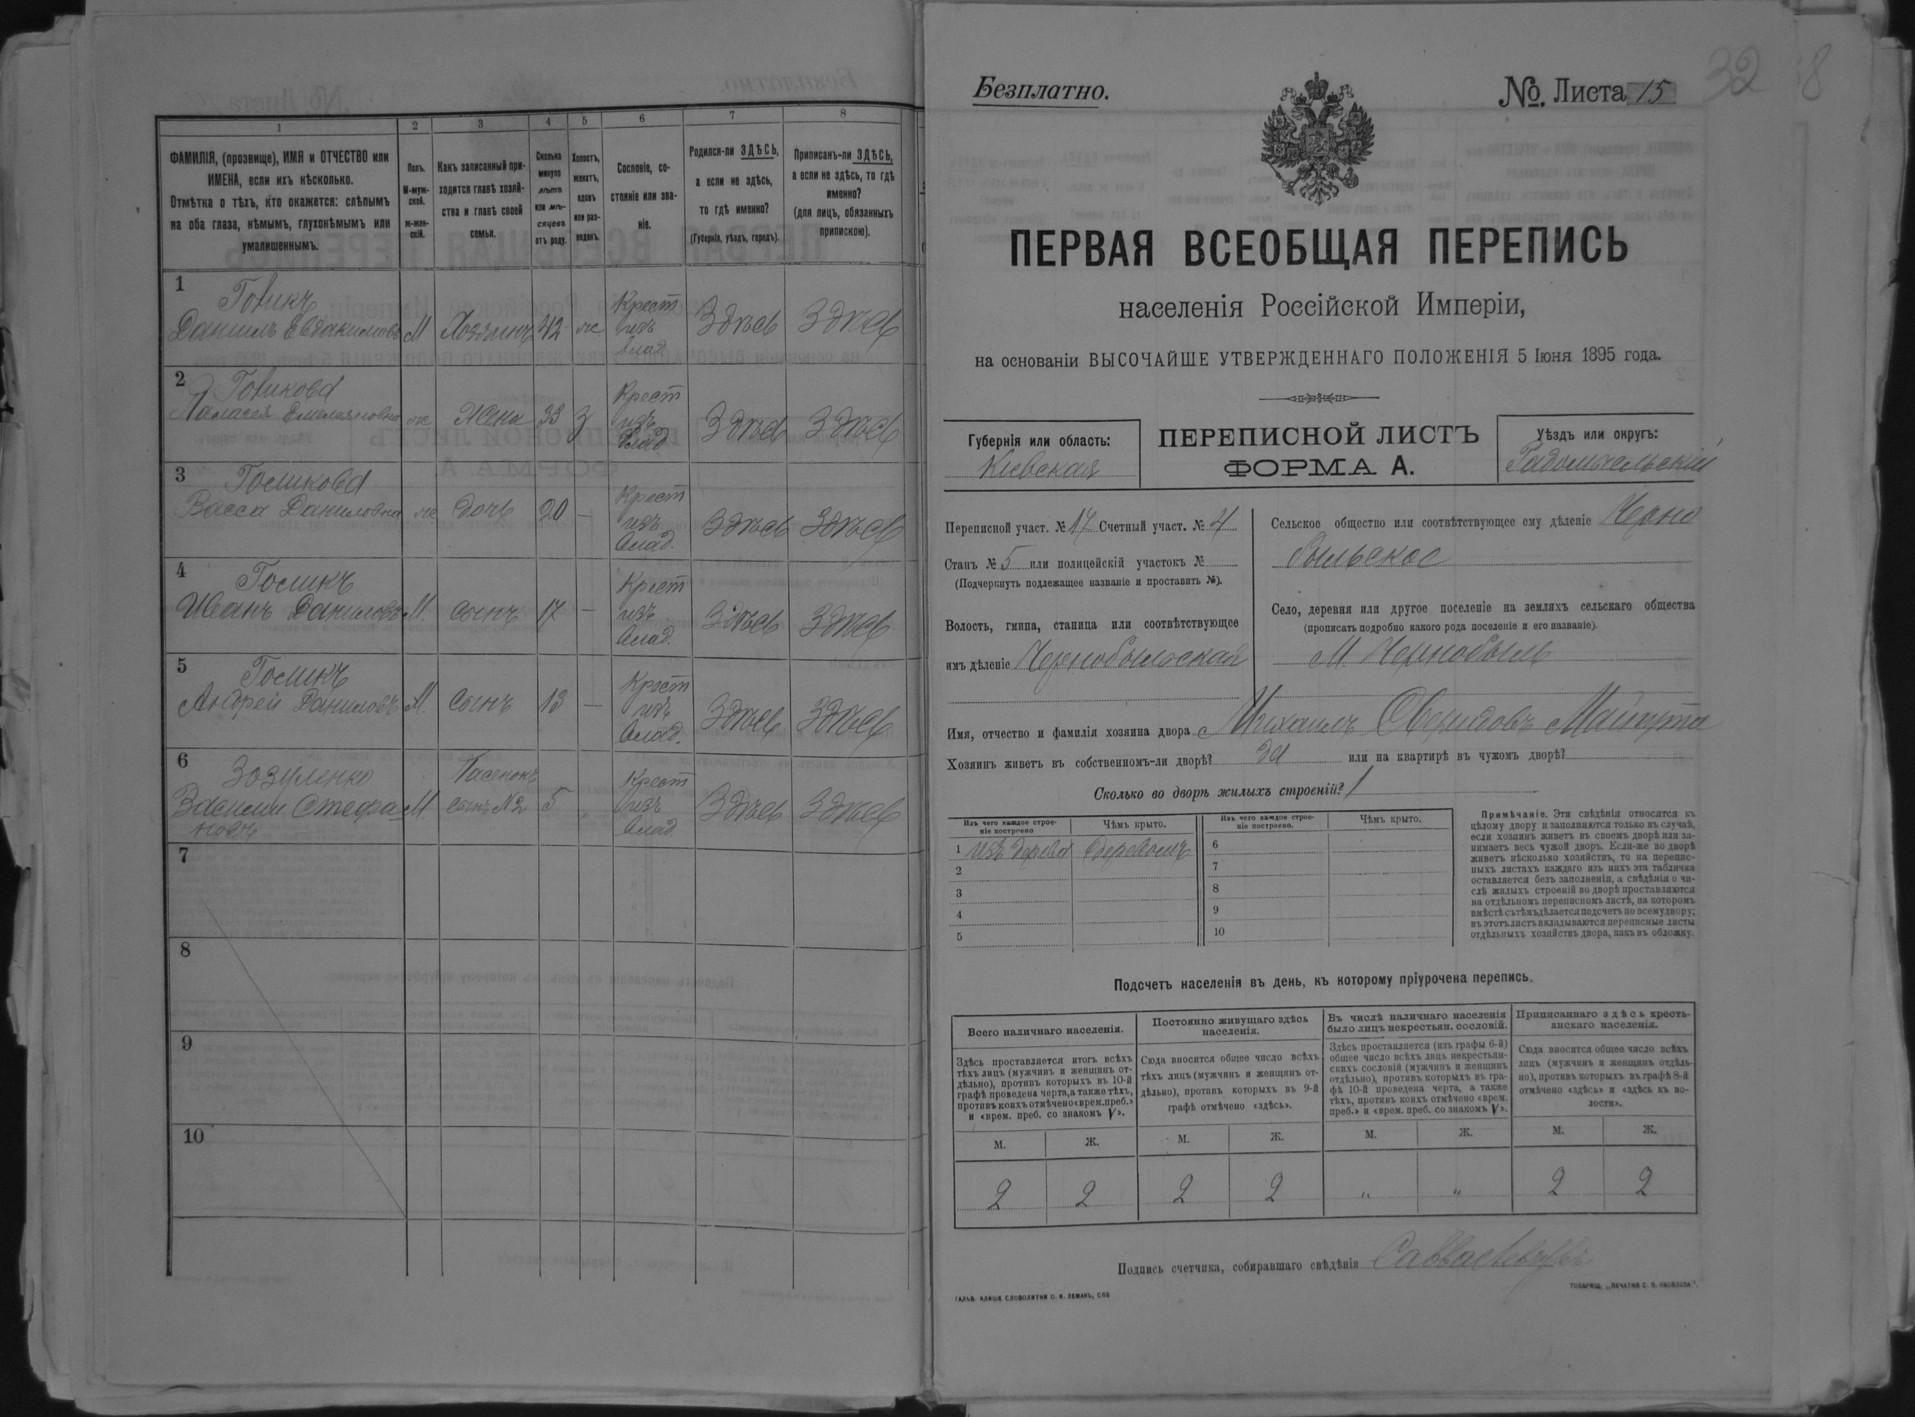 1
2
3
4
5
6
7
8
ФАМИЛІЯ, (прозвище), ИМЯ и ОТЧЕСТВО или
ИМЕНА, если ихъ нѣсколько.
Отмѣтка о тѣхъ, кто окажется: слѣпымъ
на оба глаза, нѣмымъ, глухонѣмымъ или
умалишеннымъ.
Полъ.
М-муж-
ской.
ж-жен-
скій.
Какъ записанный при-
ходится главѣ хозяй-
ства и главѣ своей
семьи.
Сколько
минуло
лѣтъ
или мѣ-
сяцевъ
отъ роду.
Холостъ,
женатъ,
вдовъ
или раз-
веденъ.
Сословіе, со-
стояніе или зва-
ніе.
Родился-ли ЗДѢСЬ,
а если не здѣсь,
то гдѣ именно?
(Губернія, уѣздъ, городъ).
Приписанъ-ли ЗДѢСЬ,
а если не здѣсь, то гдѣ
именно?
(для лицъ, обязанныхъ
припискою).
1
Даниилъ Евдакимовъ М Хозяинъ 42 ж Крест изъ влад Здѣсь Здѣсь
2
Паласея Емельяновна ж Жена 33 з Крест изъ влад Здѣсь Здѣсь
3 Голикова
Васса Даниловна ж дочь 20 — Крест изъ влад. Здѣсь Здѣсь
4 Голикъ
Иванъ Даниловъ М. сынъ 17 — Крест изъ влад. Здѣсь Здѣсь
5 Голикъ
Андрей Даниловъ М. сынъ 13 — Крест изъ влад. Здѣсь Здѣсь
6 Зозуленко
Василии Стефа М Пасенокъ сынъ №2 5 Крест изъ влад Здѣсь Здѣсь
новъ
7
8
9
10
32
Безплатно.
№. Листа 15
ПЕРВАЯ ВСЕОБЩАЯ ПЕРЕПИСЬ
населенія Россійской Имперіи,
на основаніи ВЫСОЧАЙШЕ УТВЕРЖДЕННАГО ПОЛОЖЕНІЯ 5 Іюня 1895 года.
Губернія или область:
Кіевская
ПЕРЕПИСНОЙ ЛИСТЪ
ФОРМА А.
Уѣздъ или округъ:
Радомысльскій
Переписной участ. № 17 Счетный участ. № 4
Станъ № 5 или полицейскій участокъ №
(Подчеркнуть подлежащее названіе и проставить №).
Волость, гмина, станица или соотвѣтствующее
имъ дѣленіе Чернобыльская
Сельское общество или соотвѣтствующее ему дѣленіе Черно
быльское
Село, деревня или другое поселеніе на земляхъ сельскаго общества
(прописать подробно какого рода поселеніе и его названіе).
М. Чернобыль
Имя, отчество и фамилія хозяина двора Михаилъ Свиридовъ
Хозяинъ живетъ въ собственномъ-ли дворѣ? да или на квартирѣ въ чужомъ дворѣ?
Сколько во дворѣ жилыхъ строеній? 1
Изъ чего каждое строе-
ніе построено
Чѣмъ крыто.
Изъ чего каждое строе-
ніе построено.
Чѣмъ крыто.
1 изъ дерева деревомъ
2
3
4
5
6
7
8
9
10
Примѣчаніе. Эти свѣдѣнія относятся къ
цѣлому двору и заполняются только въ случаѣ,
если хозяинъ живетъ въ своемъ дворѣ или за-
нимаетъ весь чужой дворъ. Если-же во дворѣ
живетъ нѣсколько хозяйствъ, то на перепис-
ныхъ листахъ каждаго изъ нихъ эта табличка
оставляется безъ заполненія, а свѣдѣнія о чи-
слѣ жилыхъ строеній во дворѣ проставляются
на отдѣльномъ переписномъ листѣ, на которомъ
вмѣстѣ съ тѣмъ дѣлается подсчетъ по всему двору;
въ этотъ листъ вкладываются переписные листы
отдѣльныхъ хозяйствъ двора, какъ въ обложку.
Подсчетъ населенія въ день, къ которому пріурочена перепись.
Всего наличнаго населенія.
Постоянно живущаго здѣсь
населенія.
Въ числѣ наличнаго населенія
было лицъ некрестьян. сословій.
Приписаннаго здѣсь кресть-
янскаго населенія.
Здѣсь проставляется итогъ всѣхъ
тѣхъ лицъ (мужчинъ и женщинъ от-
дѣльно), противъ которыхъ въ 10-й
графѣ проведена черта, а также тѣхъ,
противъ коихъ отмѣчено «врем. преб.»
и «врем. преб. со знакомъ V».
Сюда вносится общее число всѣхъ
тѣхъ лицъ (мужчинъ и женщинъ от-
дѣльно), противъ которыхъ въ 9-й
графѣ отмѣчено «здѣсь».
Здѣсь проставляется (изъ графы 6-й)
общее число всѣхъ лицъ некрестьян-
скихъ сословій (мужчинъ и женщинъ
отдѣльно), противъ которыхъ въ гра-
фѣ 10-й проведена черта, а также
тѣхъ, противъ коихъ отмѣчено «врем.
преб.» и «врем. преб. со знакомъ V».
Сюда вносится общее число всѣхъ
лицъ (мужчинъ и женщинъ отдѣль-
но), противъ которыхъ въ графѣ 8-й
отмѣчено «здѣсь» и «здѣсь въ во-
лости».
М. Ж. М. Ж. М. Ж. М. Ж.
2 2 2 2 „ „ 2 2
Подпись счетчика, собиравшаго свѣдѣнія
ГАЛЬВ. КЛИШЕ СЛОВОЛИТНИ О. И. ЛЕМАНЪ, СПБ
ТОВАРИЩ. „ПЕЧАТНЯ С. П. ЯКОВЛЕВА".